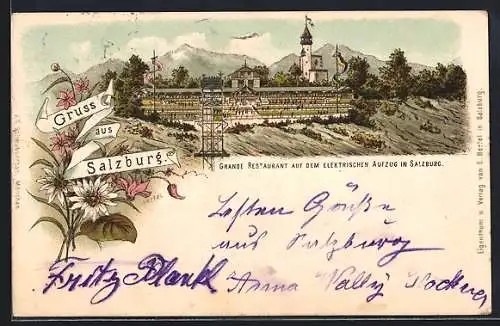 Gruss
aus
Salzburg.
GRANDE RESTAURANT AUF DEM ELEKTRISCHEN AUFZUG IN SALZBURG.
Eigenthum u. Verlag von E. Hertel in Salzburg.
Grüße
aus Salzburg
Fritz Blankl Anna Vally